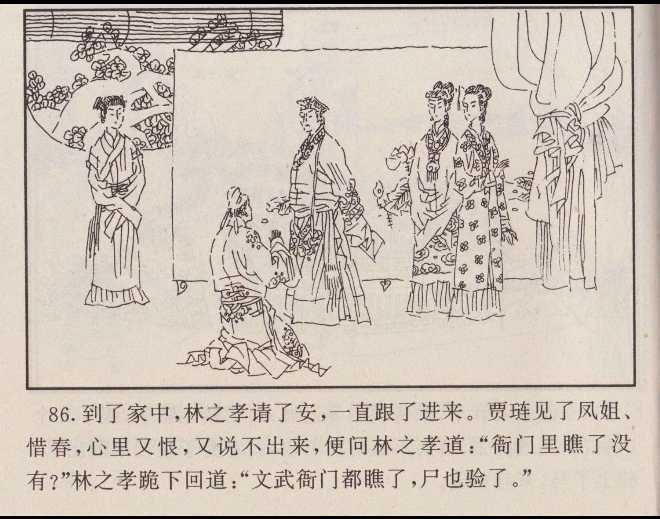 86.到了家中,林之孝请了安,一直跟了进来。贾琏见了凤姐、
惜春,心里又恨,又说不出来,便问林之孝道:“衙门里瞧了没
有?”林之孝跪下回道:“文武衙门都瞧了,尸也验了。”